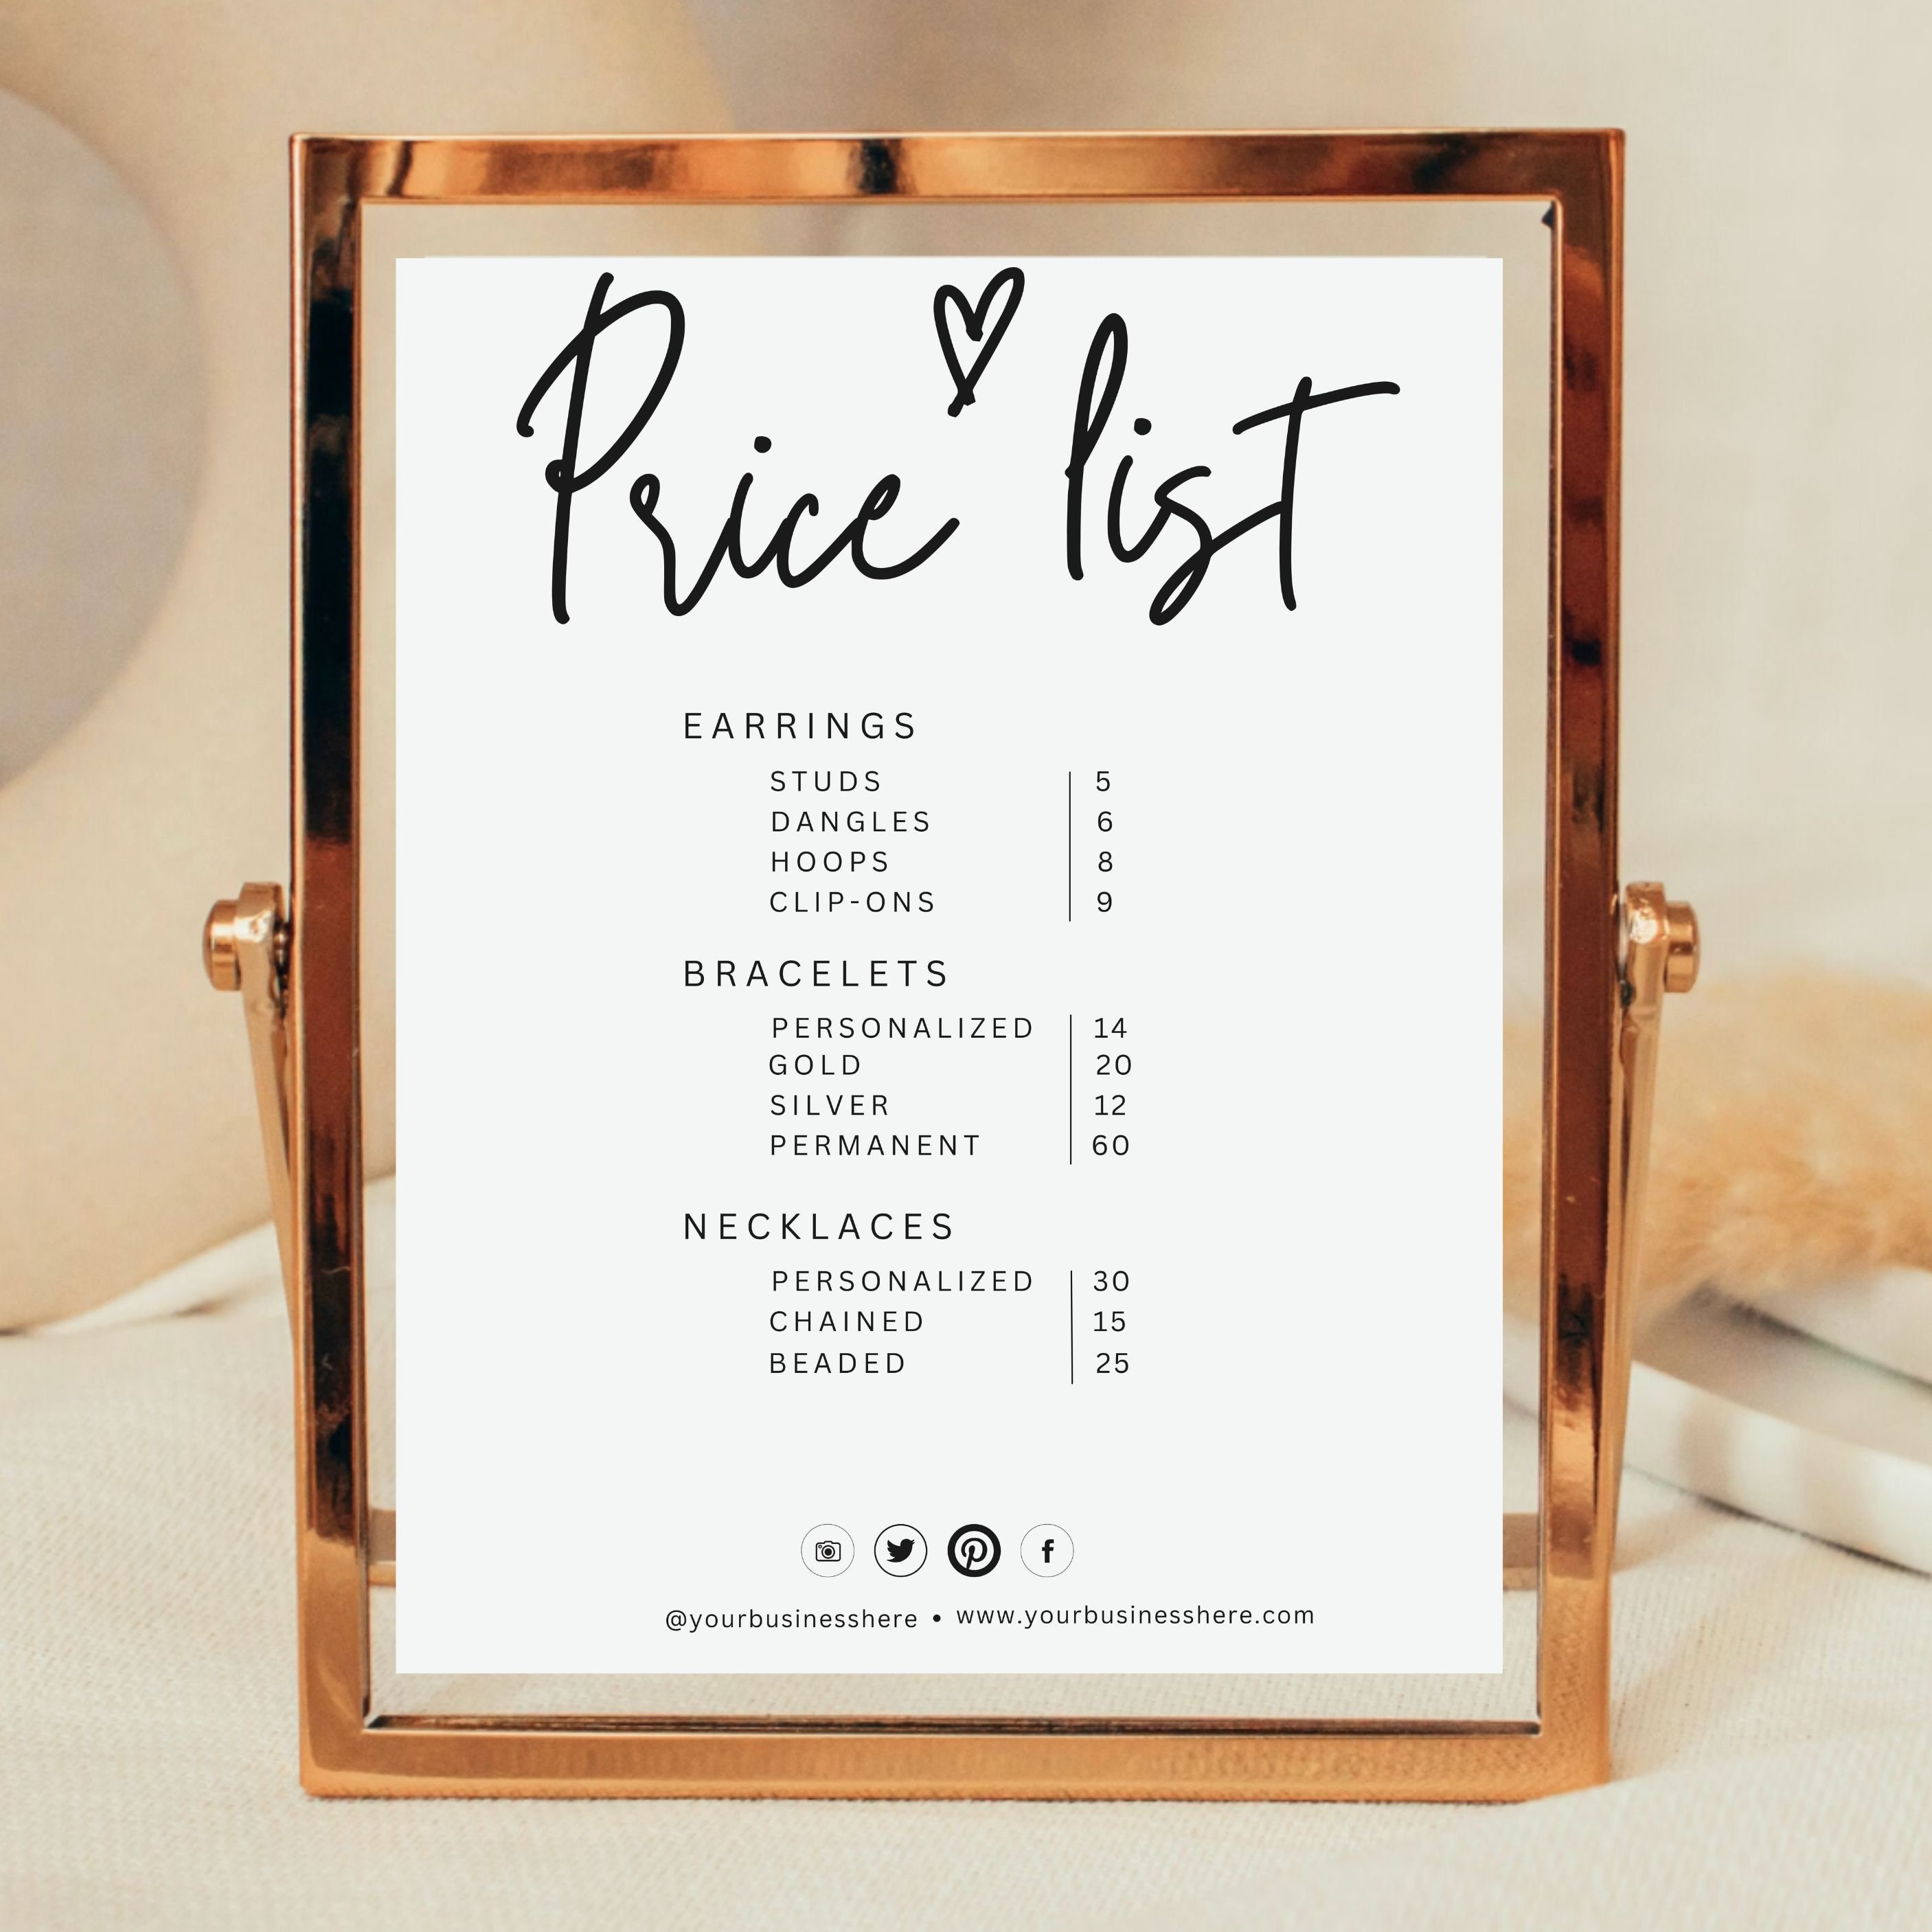 Price list
EARRINGS
STUDS 5
DANGLES 6
HOOPS 8
CLIP-ONS 9
BRACELETS
PERSONALIZED 14
GOLD 20
SILVER 12
PERMANENT 60
NECKLACES
PERSONALIZED 30
CHAINED 15
BEADED 25
@yourbusinesshere • www.yourbusinesshere.com